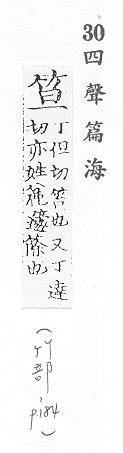 30 四聲篇海
笪
丁但切笞也又丁達
切亦姓䉬籧蒢也
(竹部, p.184)